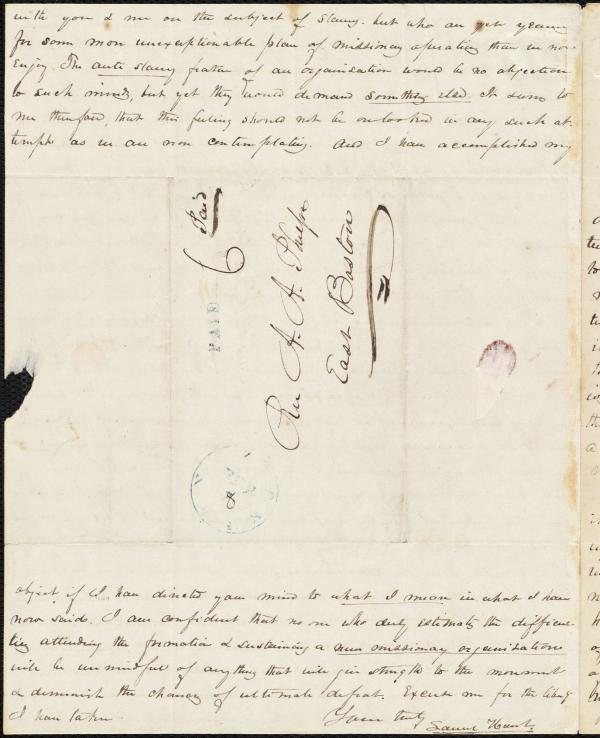 with you & me on the subject of slavery. but who are yet yearning
for some more unexceptionable plan of missionary operating than we now
enjoy. The anti slavery feature of an organisation would be no objection
to such minds, but yet they would demand something else. It seems to
me therefore, that this feeling should not be overlooked in any such at-
tempt as we are now contemplating. And I have accomplished my
Paid
6
PAID
Rev A. A. Phelps
East Boston
object, if I have directed your mind to what I mean in what I have
now said. I am confident that no one who duly estimates the difficul-
ties attending the formation & sustaining a new missionary organisation
will be unmindful of anything that will give strength to the movement
& diminish the chances of ultimate defeat. Excuse me for the liberty
I have taken.
Yours truly
Samuel Hunt